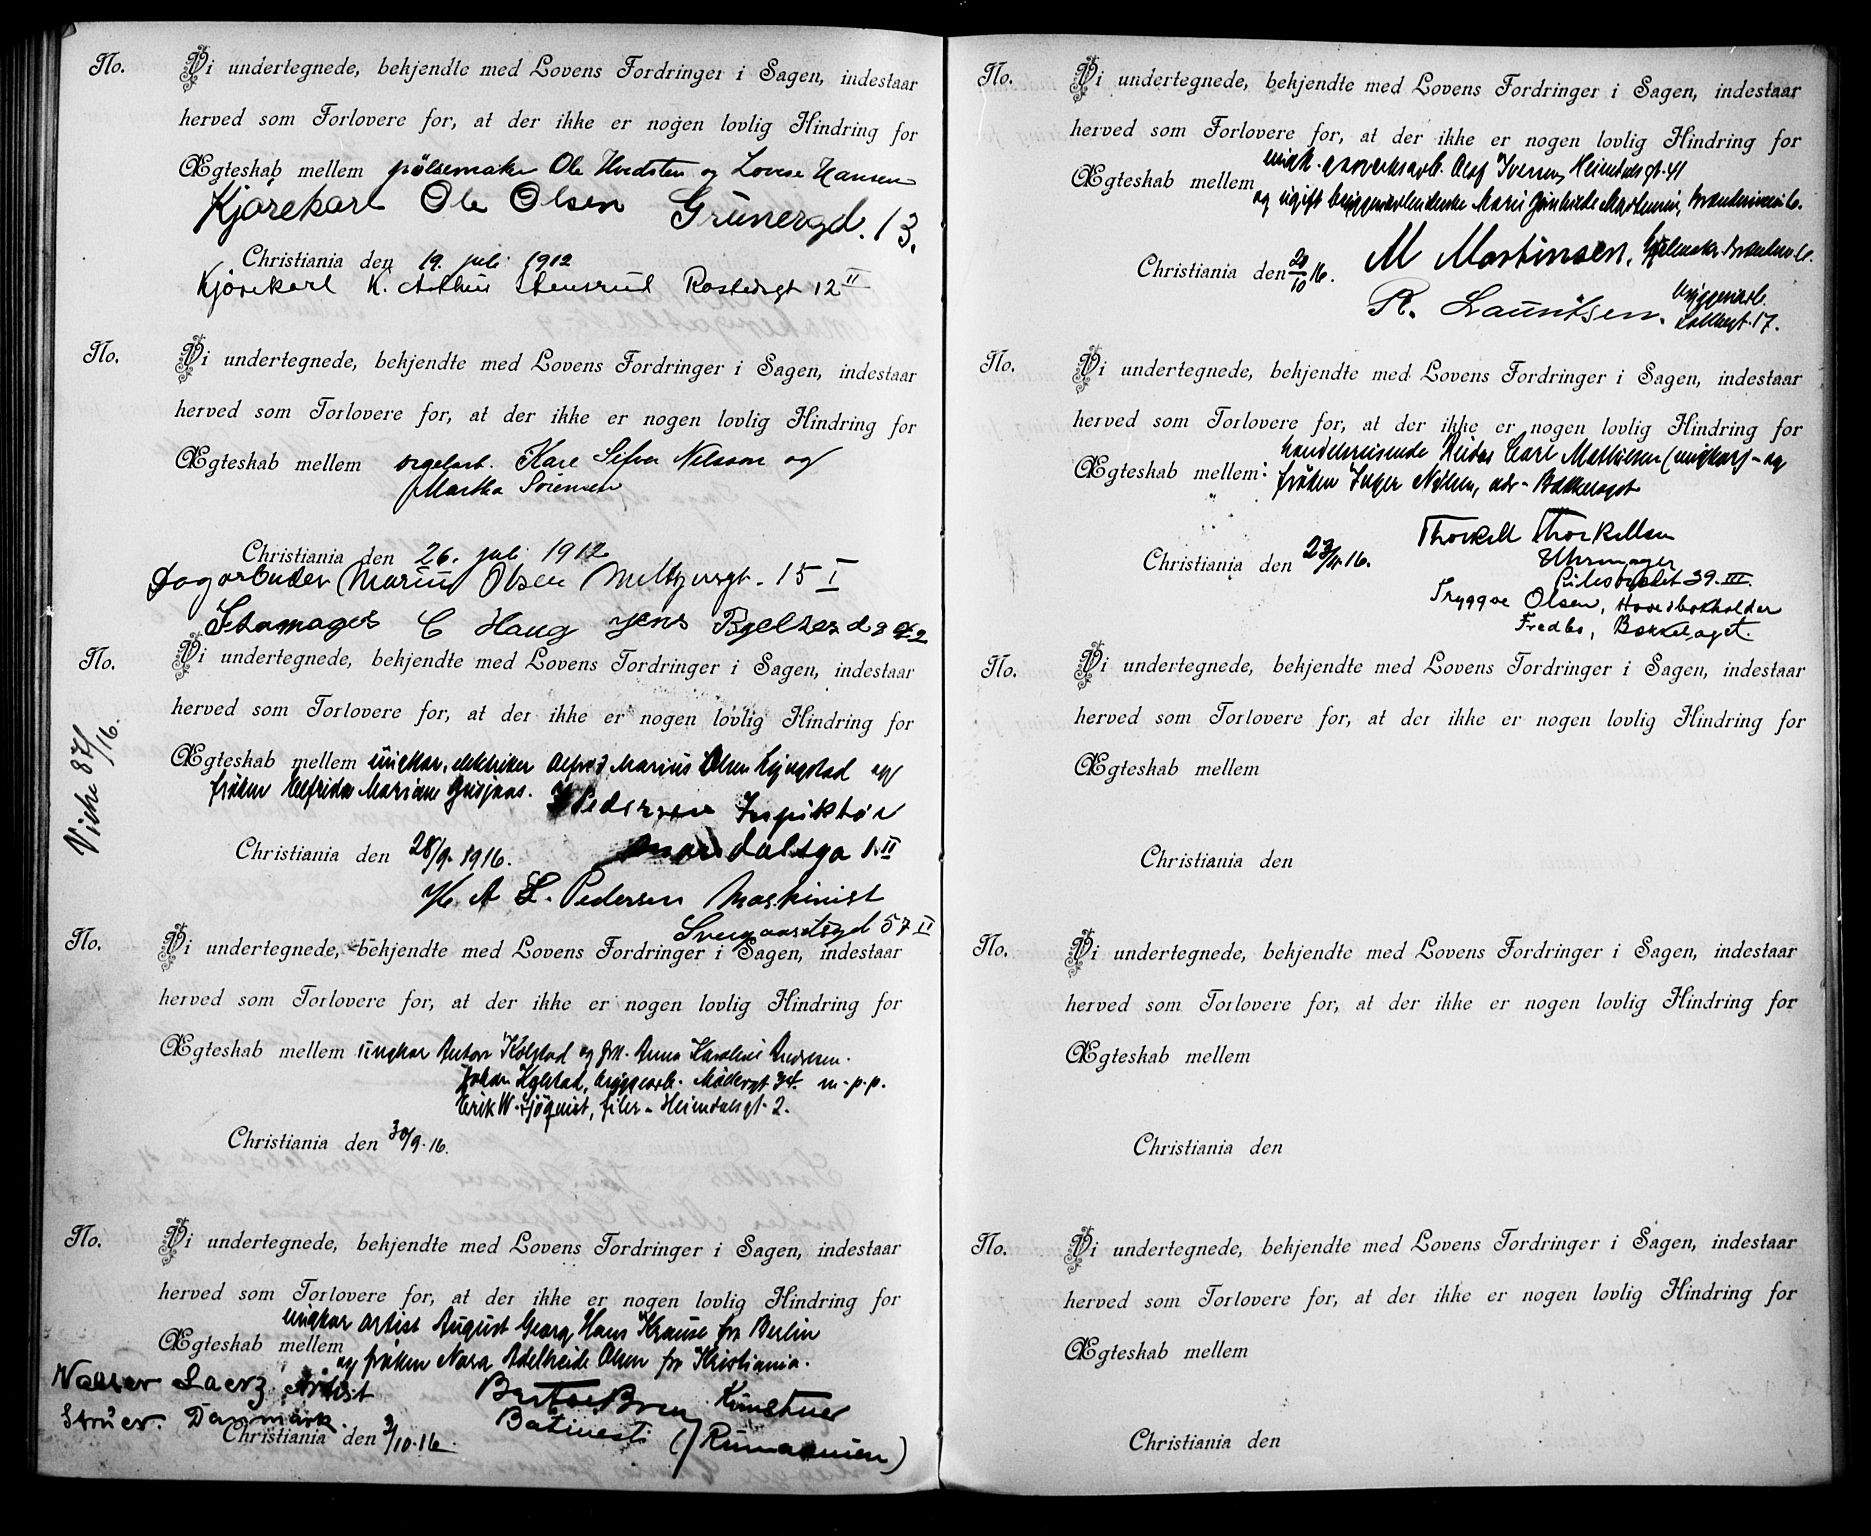 No. Vi undertegnede, bekjendte med Lovens Fordringer i Sagen, indestaar
herved som Forlovere for, at der ikke er nogen lovlig Hindring for
Ægteskab mellem pölsemaker Ole Hvidsten og Lovise Hansen
Kjörekarl Ole Olsen Grünergd. 13.
Christiania den 19. juli 1912
Kjörekarl K. Arthur Stensrud Rostedsgt 12 II
No. Vi undertegnede, bekjendte med Lovens Fordringer i Sagen, indestaar
herved som Forlovere for, at der ikke er nogen lovlig Hindring for
Ægteskab mellem orgelarb. Kare Nilsson og
Martha Sörensen
Christiania den 26. juli 1912
Dagarbeider Marius Olsen 15 I
C Haug Jens Bjelkes
No. Vi undertegnede, bekjendte med Lovens Fordringer i Sagen, indestaar
herved som Forlovere for, at der ikke er nogen lovlig Hindring for
Vielse 87/16.
Ægteskab mellem ungkar, elektriker Alfred Marius Olsen Lyngstad og
fröken Alfrida Mariane
Pedersen Inspiktör
Christiania den 28/9. 1916. 1. II
A L. Pedersen Maskinist
57 II
No. Vi undertegnede, bekjendte med Lovens Fordringer i Sagen, indestaar
herved som Forlovere for, at der ikke er nogen lovlig Hindring for
Ægteskab mellem ungkar Anton Kolstad og frk. Anna Karoline Andresen.
Johan Kolstad, bryggearb. Möllergt 34. m.p.p.
Erik W. Sjöquist, filer. Heimdalsgt. 2.
Christiania den 30/9. 16.
No. Vi undertegnede, bekjendte med Lovens Fordringer i Sagen, indestaar
herved som Forlovere for, at der ikke er nogen lovlig Hindring for
ungkar artist August Georg Hans Krause fra Berlin
Ægteskab mellem
og fröken Nora Adelheide Olsen fra Kristiania.
Artist Künstner
Struer. Danmark. Batinesti (Rumaenien)
Christiania den 3/10.16.
No. Vi undertegnede, bekjendte med Lovens Fordringer i Sagen, indestaar
herved som Forlovere for, at der ikke er nogen lovlig Hindring for
ungk. gasverksarb. Olaf Iversen, Heimdalsgt. 41
Ægteskab mellem
og ugift Marie
Christiania den 20/10 16. M Martinsen,
R. Lauritsen. bryggeriarb.
No. Vi undertegnede, bekjendte med Lovens Fordringer i Sagen, indestaar
herved som Forlovere for, at der ikke er nogen lovlig Hindring for
handelsreisende Reidar Carl Mathisen (ungkar) - og
Ægteskab mellem:
fröken Inger Nilsen, adr. Bækkelaget
Thorkell Thorkellsen
Christiania den 23/11.16. Uhrmager
39. III.
Tryggve Olsen, Hovedbokholder
Fredbo, Bækkelaget.
No. Vi undertegnede, bekjendte med Lovens Fordringer i Sagen, indestaar
herved som Forlovere for, at der ikke er nogen lovlig Hindring for
Ægteskab mellem
Christiania den
No. Vi undertegnede, bekjendte med Lovens Fordringer i Sagen, indestaar
herved som Forlovere for, at der ikke er nogen lovlig Hindring for
Ægteskab mellem
Christiania den
No. Vi undertegnede, bekjendte med Lovens Fordringer i Sagen, indestaar
herved som Forlovere for, at der ikke er nogen lovlig Hindring for
Ægteskab mellem
Christiania den